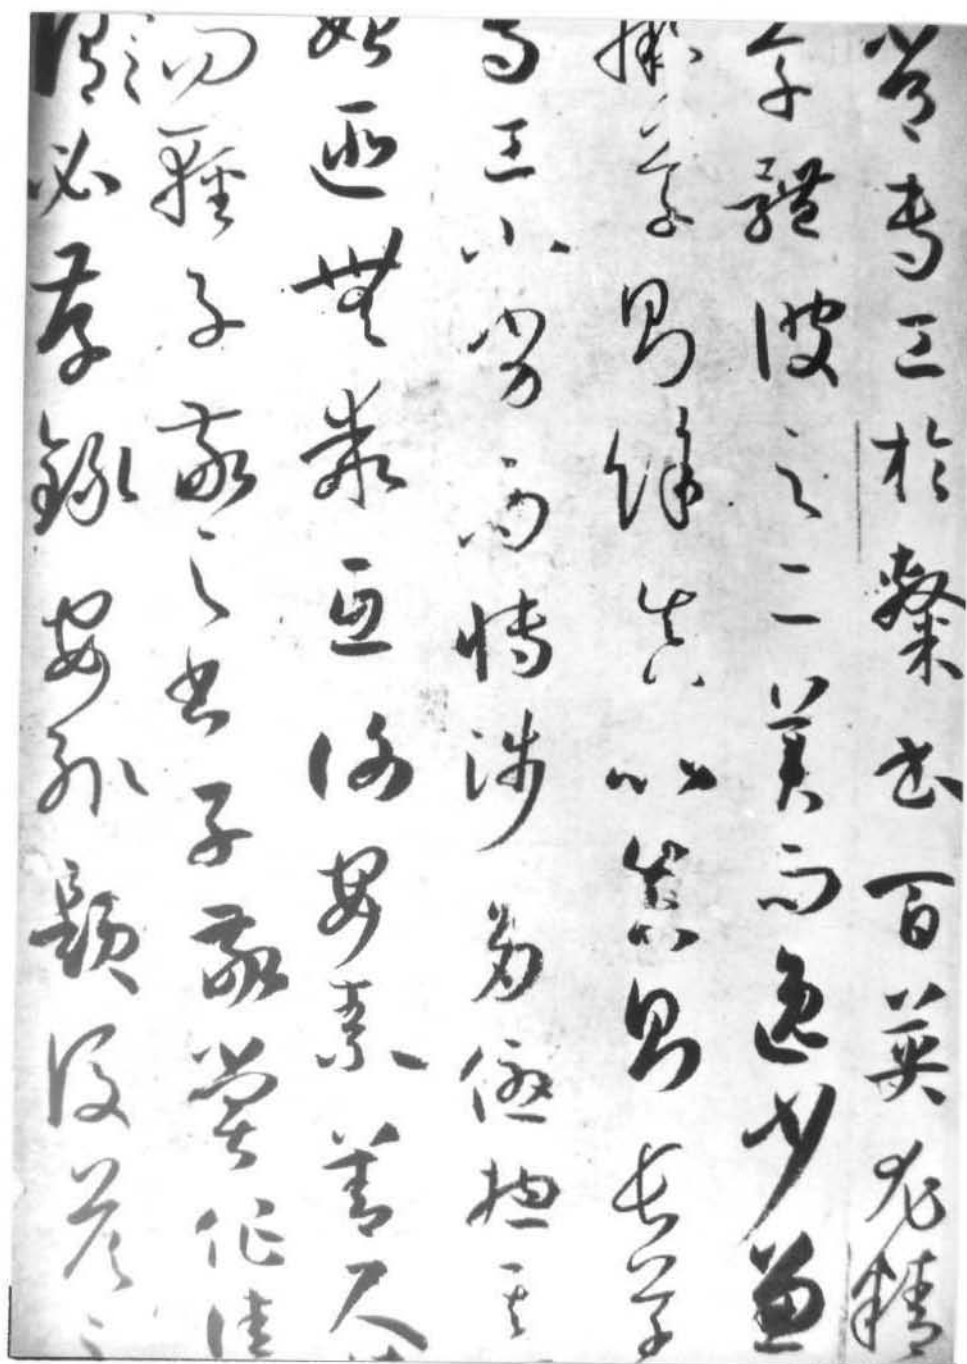 常專工於隸書百英尤精
草體彼之二美而逸少兼
擬草則餘真比真則長草
專工小劣而博涉多優揔其
始匪無乖互謝安素善尺
而輕子敬之書子敬嘗作佳
謂必存錄安輒題後答之